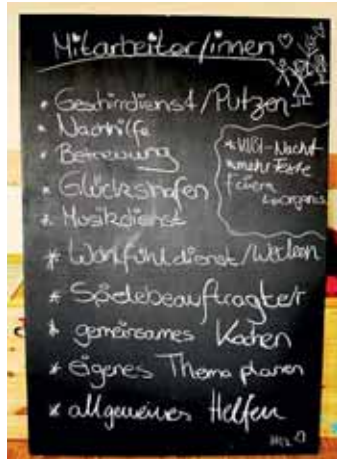 Mitarbeiter/innen
* Geschirrdienst/Putzen
* Nachhilfe
* Betreuung
* Glückshafen
* Musikdienst
* Wohlfühldienst/Wecken
* Spielebeauftragter
* gemeinsames Kochen
* eigenes Thema planen
* allgemeines Helfen
-Nacht
* mehr Feste
feiern
organis.